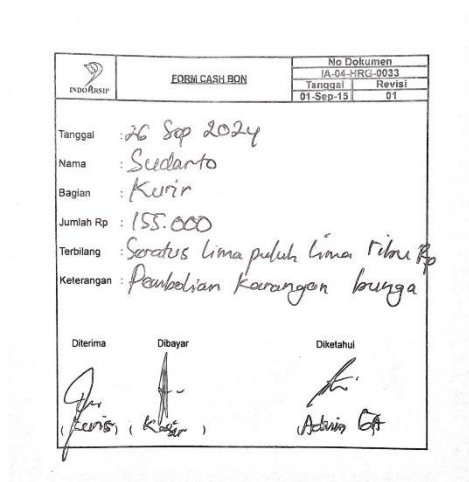 INDOARSIP
FORM CASH BON
No Dokumen
IA-04-HRG-0033
Tanggal Revisi
01-Sep-15 01
Tanggal : 26 Sep 2024
Nama : Sudarto
Bagian : Kurir
Jumlah Rp : 155.000
Terbilang : Seratus lima puluh lima ribu Rp
Keterangan : Pembelian Karangan bunga
Diterima Dibayar Diketahui
(Kurir) (Kasir) (Admin GA